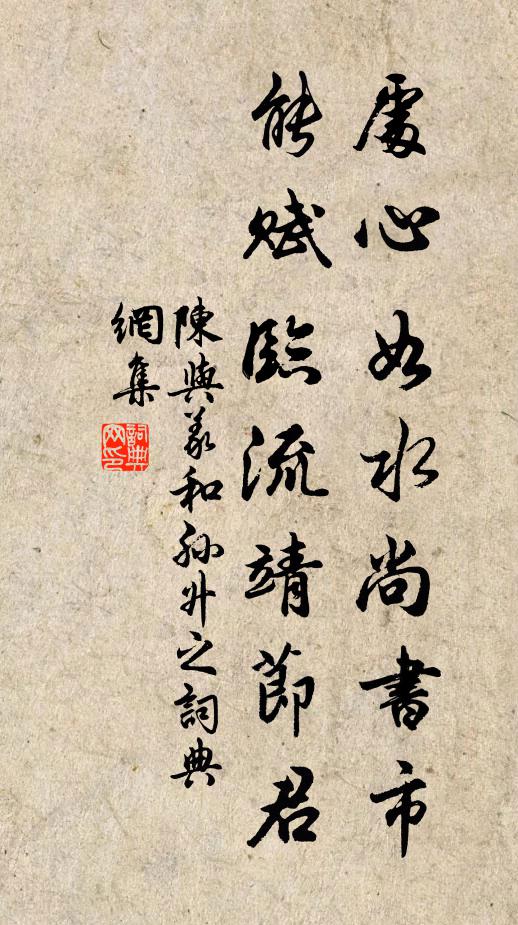 處心如水尚書市
能賦臨流靖節君
陳與義和孫升之詞典
網集
詞典網印